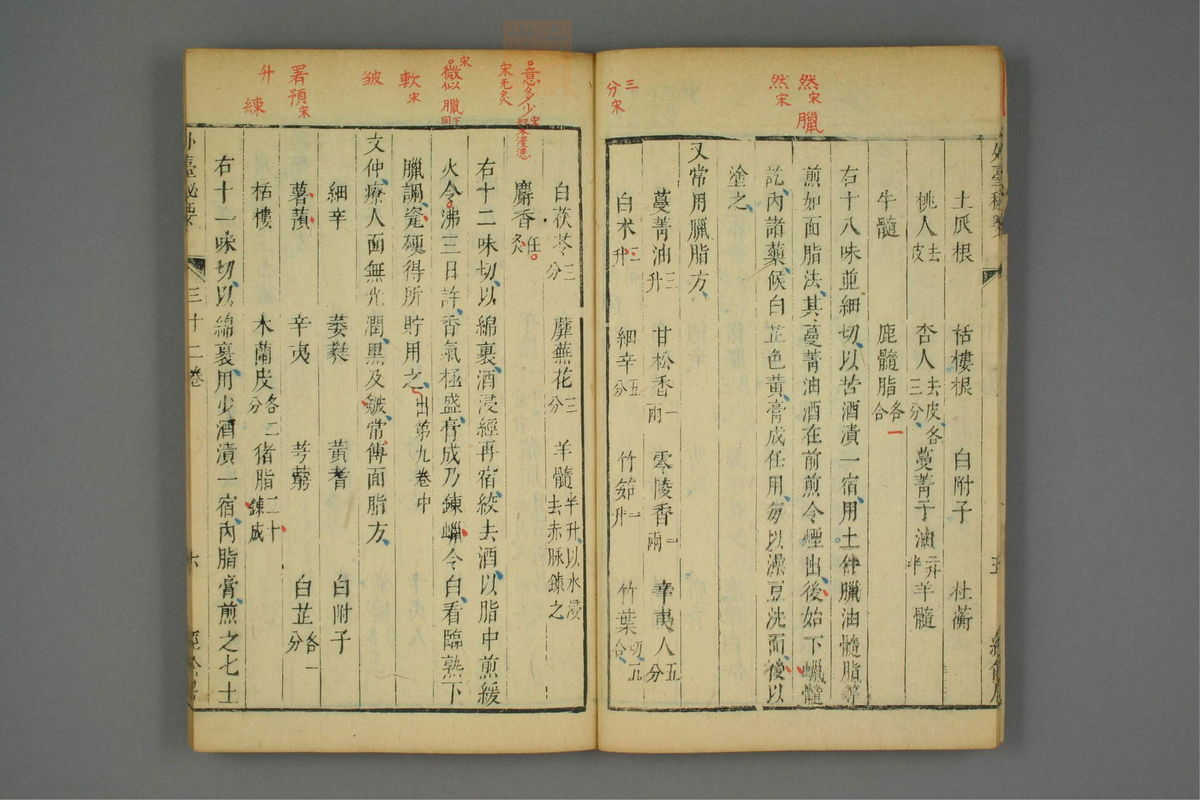 然宋 臘
然宋
三分宋
土瓜根 栝樓根 白附子 杜蘅
桃人去皮 杏人去皮各三分 蔓菁子油二升半 羊髓
牛髓 鹿髓脂各一合
右十八味並細切以苦酒漬一宿用上件臘油髓脂等
煎如面脂法其蔓菁油酒在前煎令煙出後始下蠟髓
訖內諸藥候白芷色黃膏成任用每以澡豆洗面後以
塗之
又常用臘脂方
蔓菁油三升 甘松香一兩 零陵香一兩 辛夷人五分
白朮二升 細辛五分 竹茹一升 竹葉切五合
意多少宋
宋无炙
宋
微似 臘下同
軟宋
皴
署預宋
升 練
白茯苓三分 蘼蕪花三分 羊髓半升以水浸去赤脉鍊之
麝香任炙
右十二味切以綿裹酒浸經再宿絞去酒以脂中煎緩
火令沸三日許香氣極盛膏成乃鍊蠟令白看臨熟下
臘調瓷硬得所貯用之出第九卷中
文仲療人面無光潤黑及皴常傅面脂方
細辛 萎蕤 黃耆 白附子
薯蕷 辛夷 芎藭 白芷各一分
栝樓 木蘭皮各二分 猪脂二十鍊成
右十一味切以綿裹用少酒漬一宿內脂膏煎之七上
三十二卷
六